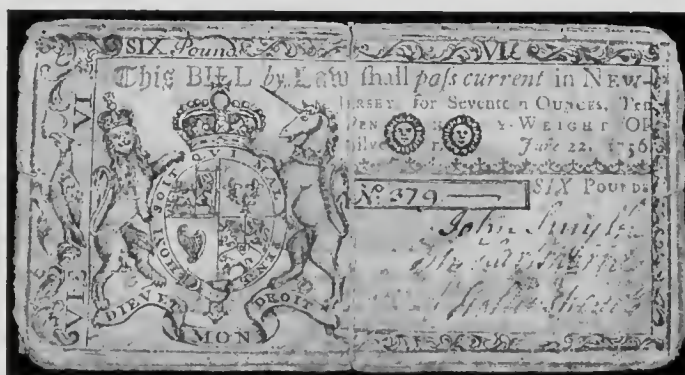 SIX Pounds
VI £
This BILL by Law shall paſs current in NEW-
JERSEY, for Seventeen OUNCES, Ten
PEN Y-WEIGHT OF
June 22, 1756
No. 379
SIX POUNDS
John Smyth
VI
VI
HONI SOIT QUI MAL Y PENSE
DIEV ET
MON
DROIT